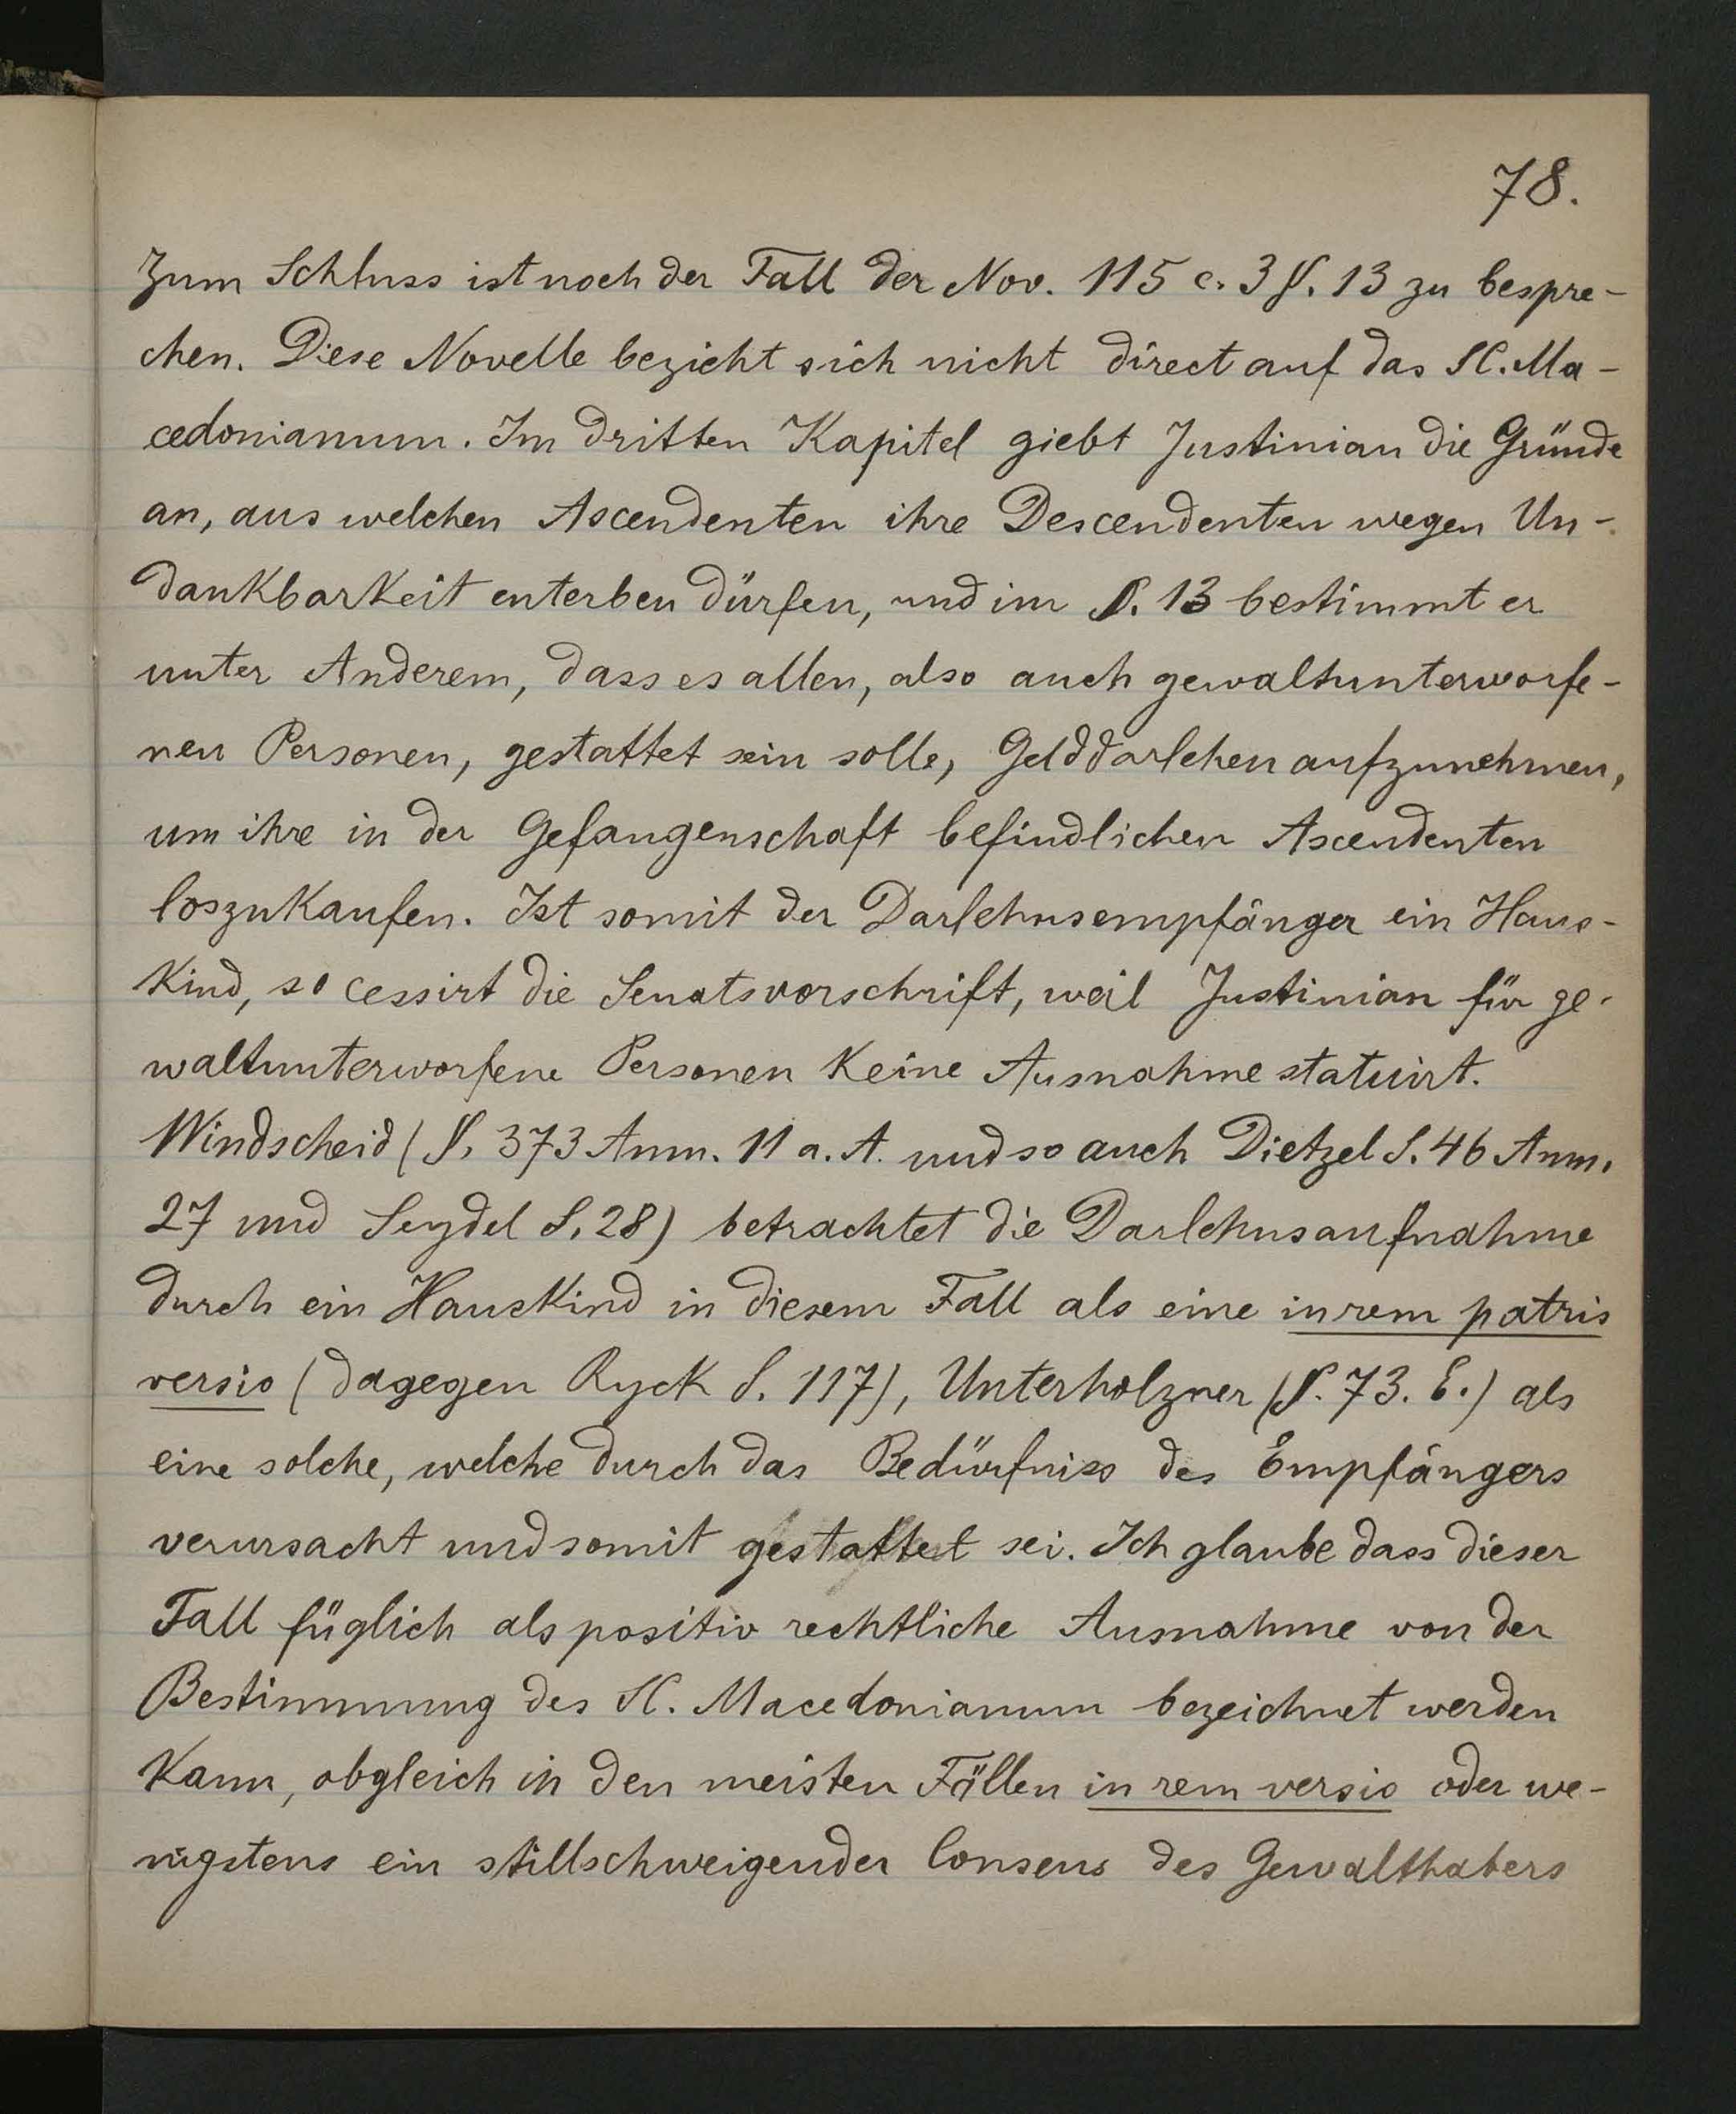 78.
Zum Schluss ist noch der Fall der Nov. 115 c. 3 §. 13 zu bespre-
chen. Diese Novelle bezieht sich nicht direct auf das SC. Ma-
cedonianum. Im dritten Kapitel giebt Justinian die Gründe
an, aus welchen Ascendenten ihre Descendenten wegen Un-
dankbarkeit enterben dürfen, und im §. 13 bestimmt er
unter Anderem, dass es allen, also auch gewaltunterworfe-
nen Personen, gestattet sein solle, Gelddarlehen aufzunehmen,
um ihre in der Gefangenschaft befindlichen Ascendenten
loszukaufen. Ist somit der Darlehnsempfänger ein Haus-
kind, so cessirt die Senatsvorschrift, weil Justinian für ge-
waltunterworfene Personen keine Ausnahme statuirt.
Windscheid (§. 373 Anm. 11 a. A. und so auch Dietzel S. 46 Anm.
27 und Seydel S. 28) betrachtet die Darlehnsaufnahme
durch ein Hauskind in diesem Fall als eine in rem patris
versio (dagegen Ryck S. 117), Unterholzner (§. 73. E.) als
eine solche, welche durch das Bedürfniss des Empfängers
verursacht und somit gestattet sei. Ich glaube dass dieser
Fall füglich als positiv rechtliche Ausnahme von der
Bestimmung des SC. Macedonianum bezeichnet werden
kann, obgleich in den meisten Fällen in rem versio oder we-
nigstens ein stillschweigender Consens des Gewalthabers